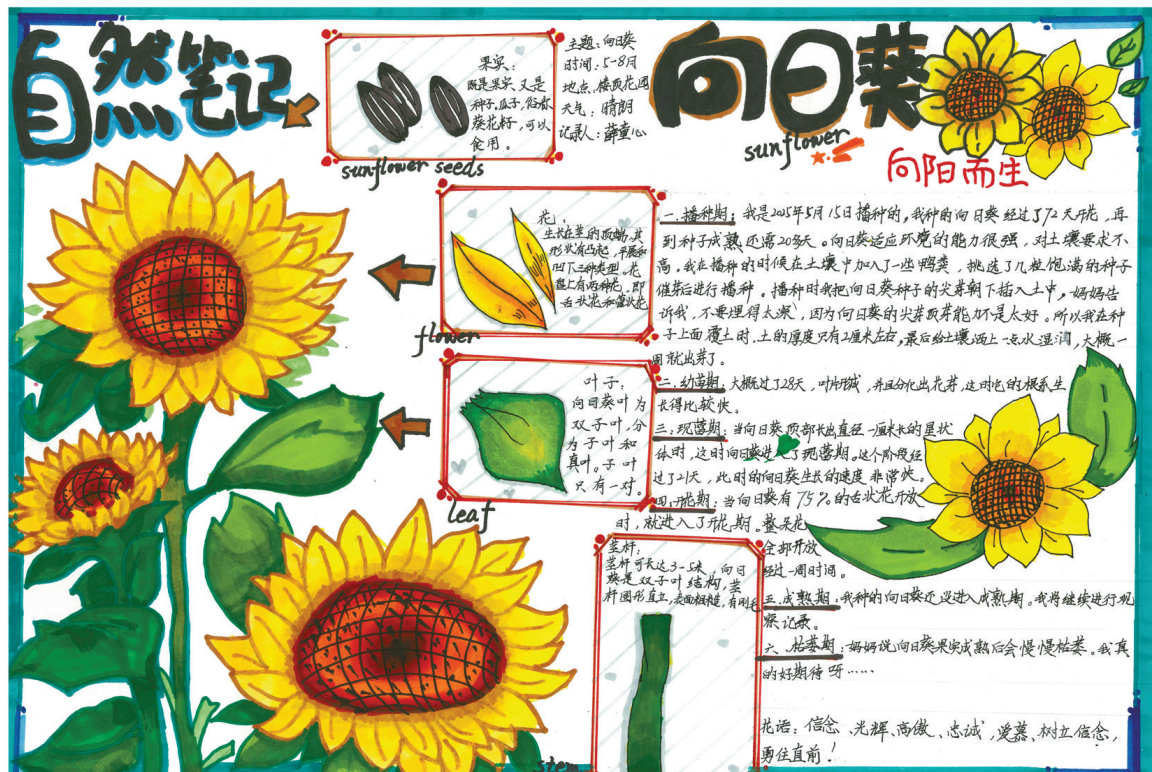 自然笔记
果实:
既是果实,又是
种子,瓜子,俗称
葵花籽,可以
食用。
sunflower seeds
主题:向日葵
时间:5-8月
地点:楼顶花园
天气:晴朗
记录人:薛童心
向日葵
sunflower
向阳而生
花:
生长在茎的顶端,其
形状有凸起、平展和
凹下三种类型。花
盘上有两种花,即
舌状花和管状花
flower
叶子:
向日葵叶为
双子叶,分
为子叶和
真叶。子叶
只有一对。
leaf
茎杆:
茎杆可长达3-5米,向日
葵是双子叶结构,茎
杆圆形直立,表面粗糙,有刚毛
stem
一.播种期:我是2015年5月15日播种的,我种的向日葵经过了72天开花,再
到种子成熟还需20多天。向日葵适应环境的能力很强,对土壤要求不
高。我在播种的时候在土壤中加入了一些鸭粪,挑选了几粒饱满的种子
催芽后进行播种。播种时我把向日葵种子的尖芽朝下插入土中,妈妈告
诉我,不要埋得太深,因为向日葵的尖芽顶芽能力不是太好。所以我在种
子上面覆土时,土的厚度只有2厘米左右,最后给土壤洒上一点水湿润,大概一
周就出芽了。
二.幼苗期:大概过了28天,叶片形成,并且分化出花芽,这时它的根系生
长得比较快。
三.现蕾期:当向日葵顶部长出直径一厘米长的星状
体时,这时向日葵进入了现蕾期。这个阶段经
过了21天,此时的向日葵生长的速度非常快。
四.开花期:当向日葵有75%的舌状花开放
时,就进入了开花期。整朵花
全部开放
经过一周时间。
五.成熟期:我种的向日葵还没进入成熟期。我将继续进行观
察记录。
六.枯萎期:妈妈说向日葵果实成熟后会慢慢枯萎。我真
的好期待呀……
花语:信念、光辉、高傲、忠诚,爱慕、树立信念,
勇往直前!